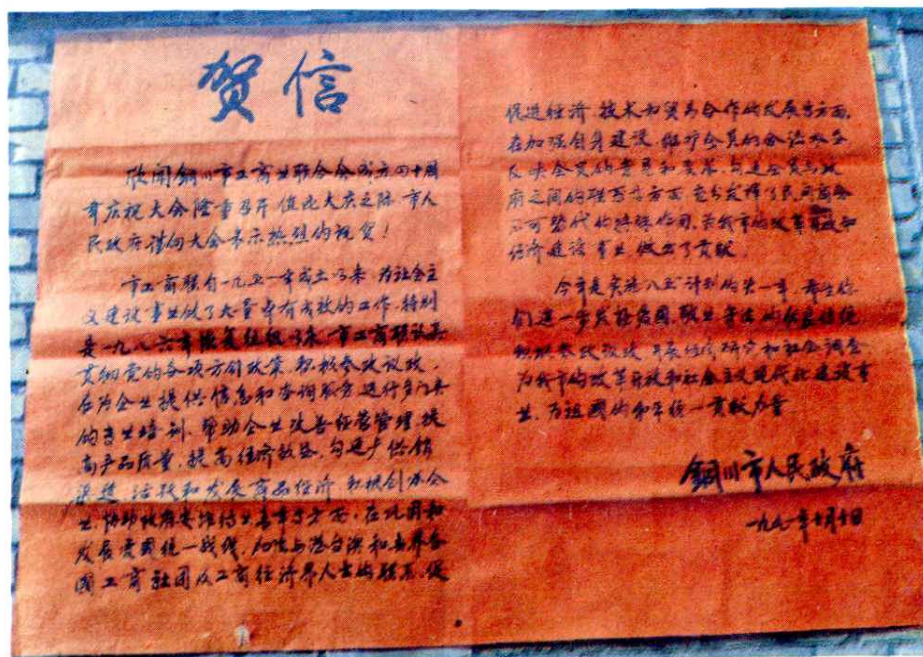 贺信
欣闻銅川市工商业联合会成立四十周
年庆祝大会隆重召开 值此大庆之际 市人
民政府谨向大会表示热烈的祝贺！
市工商联自一九五一年成立以来，为社会主
义建设事业做了大量卓有成效的工作，特别
是一九八六年恢复组织以来，市工商联认真
贯彻党的各项方针政策，积极参政议政，
在为企业提供信息和咨询服务，进行多门类
的专业培训，帮助企业改善经营管理，提
高产品质量，提高经济效益，勾通产供销
渠道，活跃和发展商品经济，积极创办企
业，协助政府安排待业青年等方面，在巩固和
发展爱国统一战线，加强与港台澳和世界各
國工商社团及工商经济界人士的联系，促
促进经济 技术和贸易合作的发展等方面，
在加强自身建设，维护会员的合法权益
反映会员的意见和要求，勾通会员与政
府之间的联系等方面 充分发挥了民间商会
不可替代的特殊作用，为我市的改革开放和
经济建设事业，做出了贡献。
今年是实施“八五”计划的第一年，希望你
们进一步发扬爱國、敬业、守法的优良传统
积极参政议政，开展经济研究和社会调查
为我市的改革开放和社会主义现代化建设事
业，为祖國的和平统一贡献力量
銅川市人民政府
一九九一年十月十日